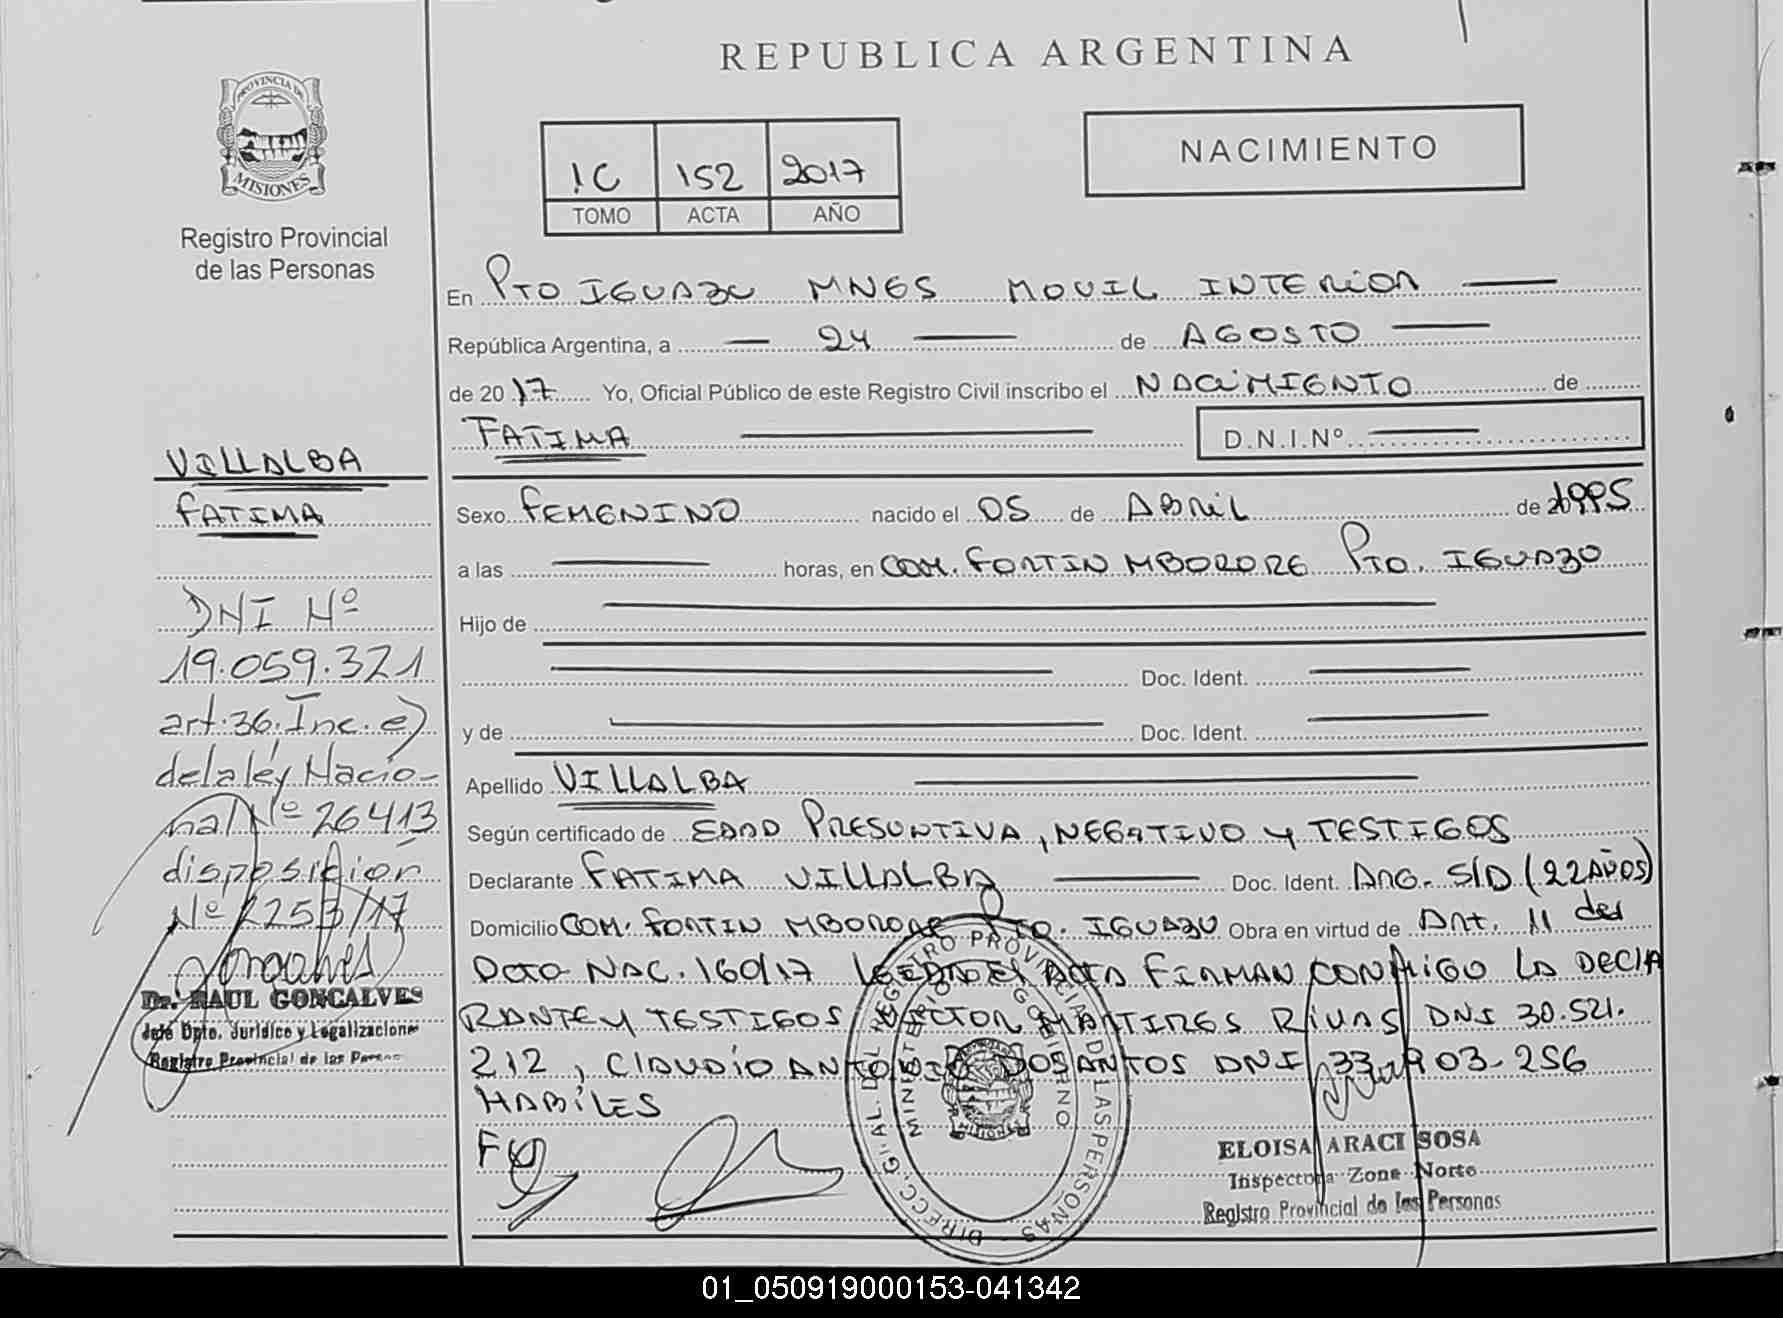 REPUBLICA ARGENTINA
PROVINCIA DE
MISIONES
Registro Provincial
de las Personas
1C 152 2017
TOMO ACTA AÑO
NACIMIENTO
En PTO IGUAZU MNES MOVIL INTERIOR
República Argentina, a 24 de AGOSTO
de 2017 Yo, Oficial Público de este Registro Civil inscribo el NACIMIENTO de
FATIMA D.N.I.Nº
Sexo FEMENINO nacido el 05 de ABRIL de 1995
a las horas, en COM. FORTIN MBORORE PTO. IGUAZU
Hijo de
Doc. Ident.
y de Doc. Ident.
Apellido VILLALBA
Según certificado de EDAD PRESUNTIVA, NEGATIVO Y TESTIGOS
Declarante FATIMA VILLALBA Doc. Ident. ARG. S/D (22 AÑOS)
Domicilio COM. FORTIN MBORORE PTO. IGUAZU Obra en virtud de ART. 11 del
DCTO NAC. 160/17 LEIDA EL ACTA FIRMAN CONMIGO LA DECLA
RANTE Y TESTIGOS HECTOR MARTIRES RIVAS DNI 30.521.
212, CLAUDIO ANTONIO DOSANTOS DNI 33.903.256
HABILES
VILLALBA
FATIMA
DNI Nº
19.059.321
art. 36. Inc. e)
de la ley Nacio-
nal Nº 26413
disposición
Nº 2253/17
Dr. RAUL GONCALVES
Jefe Dpto. Jurídico y Legalizaciones
Registro Provincial de las Personas
DIRECC. G'AL. DEL REGISTRO PROVINCIAL DE LAS PERSONAS
MINISTERIO DE GOBIERNO
ELOISA ARACI SOSA
Inspectora Zona Norte
Registro Provincial de las Personas
01_050919000153-041342